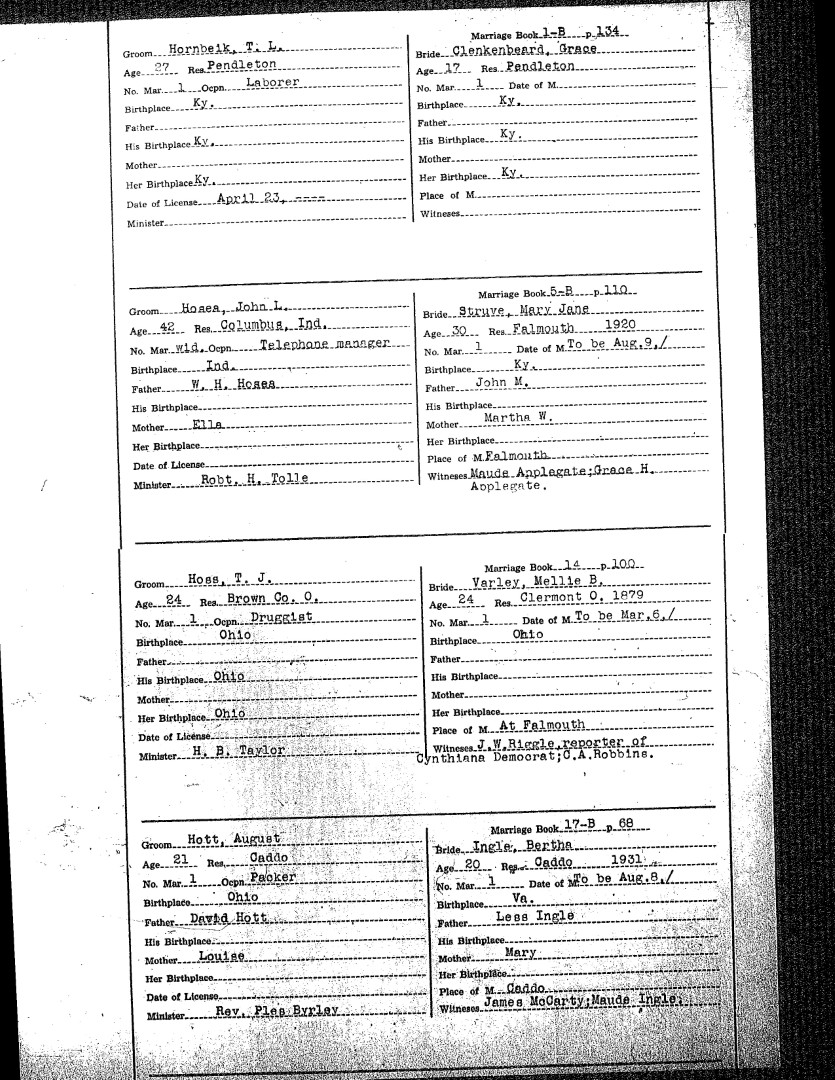 Marriage Book 1-B p. 134
Groom Hornbeik, T. L. Bride Clenkenbeard, Grace
Age 27 Res. Pendleton Age 17 Res. Pendleton
No. Mar. 1 Ocpn. Laborer No. Mar. 1 Date of M.
Birthplace Ky. Birthplace Ky.
Father Father
His Birthplace Ky. His Birthplace Ky.
Mother Mother
Her Birthplace Ky. Her Birthplace Ky.
Date of License April 23, ---- Place of M.
Minister Witnesses
Marriage Book 5-B p. 110
Groom Hosea, John L. Bride Struve, Mary Jane
Age 42 Res. Columbus, Ind. Age 30 Res. Falmouth 1920
No. Mar. wid. Ocpn. Telephone manager No. Mar. 1 Date of M. To be Aug.9,/
Birthplace Ind. Birthplace Ky.
Father W. H. Hosea Father John M.
His Birthplace His Birthplace
Mother Ella Mother Martha W.
Her Birthplace Her Birthplace
Date of License Place of M. Falmouth
Minister Robt. H. Tolle Witnesses Maude Applegate;Grace H.
Applegate.
Marriage Book 14 p. 100
Groom Hoss, T. J. Bride Varley, Mellie B.
Age 24 Res. Brown Co. O. Age 24 Res. Clermont O. 1879
No. Mar. 1 Ocpn. Druggist No. Mar. 1 Date of M. To be Mar.6,/
Birthplace Ohio Birthplace Ohio
Father Father
His Birthplace Ohio His Birthplace
Mother Mother
Her Birthplace Ohio Her Birthplace
Date of License Place of M. At Falmouth
Minister H. B. Taylor Witnesses J.W.Riggle,reporter of
Cynthiana Democrat;C.A.Robbins.
Marriage Book 17-B p. 68
Groom Hott, August Bride Ingle, Bertha
Age 21 Res. Caddo Age 20 Res. Caddo 1931
No. Mar. 1 Ocpn. Packer No. Mar. 1 Date of M. To be Aug.8,/
Birthplace Ohio Birthplace Va.
Father David Hott Father Less Ingle
His Birthplace His Birthplace
Mother Louise Mother Mary
Her Birthplace Her Birthplace
Date of License Place of M. Caddo
Minister Rev. Ples Byrley Witnesses James McCarty;Maude Ingle.